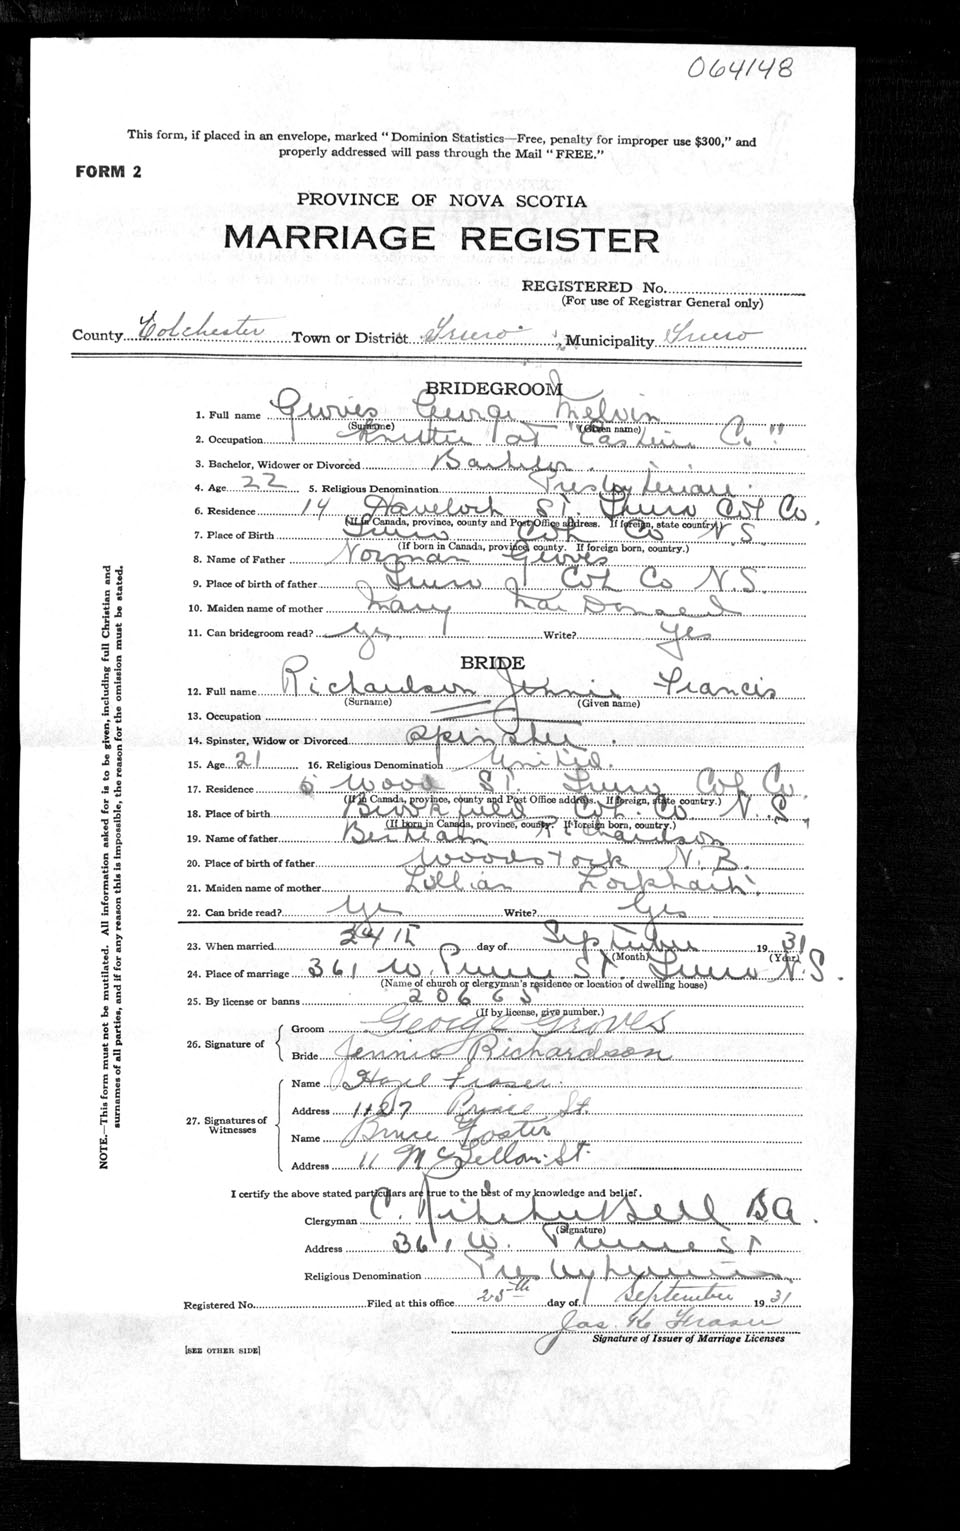 064148
This form, if placed in an envelope, marked "Dominion Statistics—Free, penalty for improper use $300," and
properly addressed will pass through the Mail "FREE."
FORM 2
PROVINCE OF NOVA SCOTIA
MARRIAGE REGISTER
REGISTERED No.
(For use of Registrar General only)
County Colchester Town or District Truro Municipality Truro
BRIDEGROOM
1. Full name Groves George Melvin
(Surname) (Given name)
2. Occupation Knitter at "Eastern Co"
3. Bachelor, Widower or Divorced Bachelor
4. Age 22 5. Religious Denomination Presbyterian
6. Residence 14 Havelock St. Truro Col Co.
(If in Canada, province, county and Post Office address. If foreign, state country.)
7. Place of Birth Truro Col. Co N.S.
(If born in Canada, province, county. If foreign born, country.)
8. Name of Father Norman Groves
9. Place of birth of father Truro Col. Co N.S.
10. Maiden name of mother Mary MacDonald
11. Can bridegroom read? Yes Write? Yes
BRIDE
12. Full name Richardson Jennie Francis
(Surname) (Given name)
13. Occupation
14. Spinster, Widow or Divorced Spinster.
15. Age 21 16. Religious Denomination United.
17. Residence 6 Wood St. Truro Col Co.
(If in Canada, province, county and Post Office address. If foreign, state country.)
18. Place of birth Brookfield Col. Co N.S.
(If born in Canada, province, county. If foreign born, country.)
19. Name of father Richardson
20. Place of birth of father Woodstock N.B.
21. Maiden name of mother Lillian Lockhart.
22. Can bride read? Yes Write? Yes
23. When married 24th day of September 1931
(Month) (Year)
24. Place of marriage 361 W. Prince St Truro N.S.
(Name of church or clergyman's residence or location of dwelling house)
25. By license or banns 20665
(If by license, give number.)
26. Signature of Groom George Groves
Bride Jennie Richardson
27. Signatures of Witnesses
Name Hazel Fraser
Address Prince St.
Name Bruce Foster
Address 11 McClellan St.
I certify the above stated particulars are true to the best of my knowledge and belief.
Clergyman C. Ritchie Bell B.A.
(Signature)
Address 361 W. Prince St
Religious Denomination Presbyterian
Registered No. Filed at this office 25th day of September 1931
Jas. K. Fraser
Signature of Issuer of Marriage Licenses
[SEE OTHER SIDE]
NOTE.—This form must not be mutilated. All information asked for is to be given, including full Christian and
surnames of all parties, and if for any reason this is impossible, the reason for the omission must be stated.